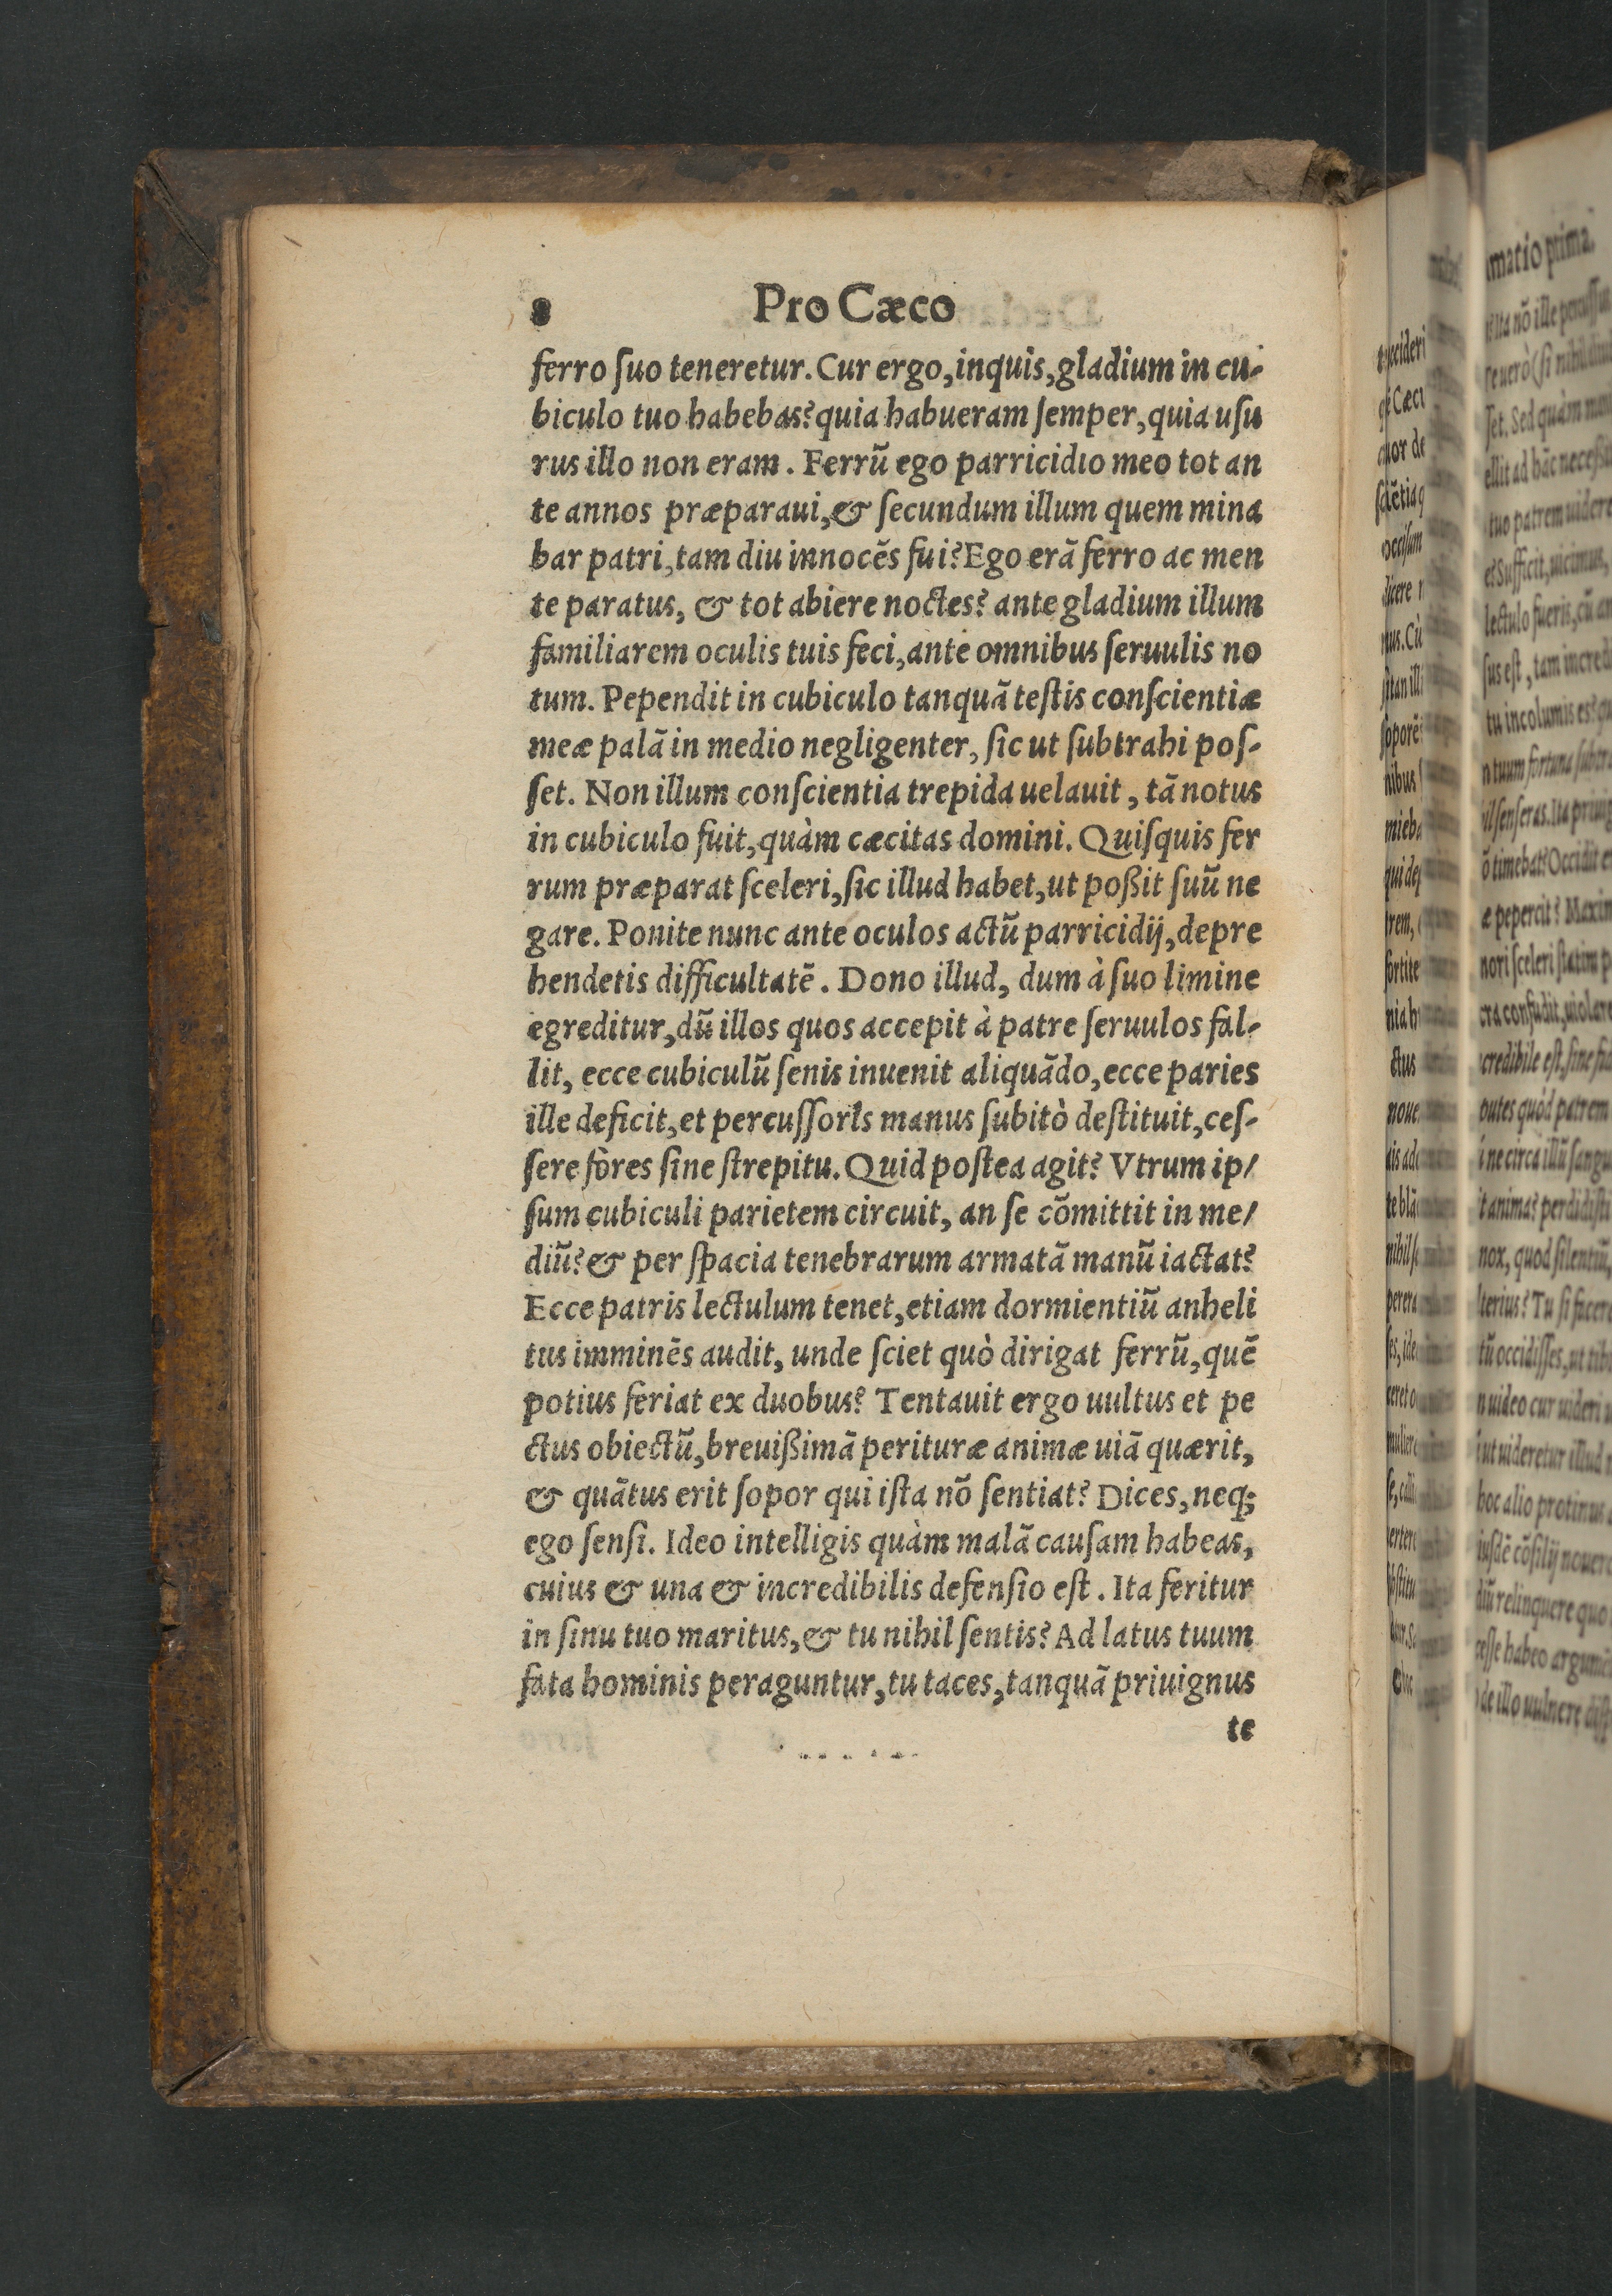 8 Pro Cæco
ferro ſuo teneretur. Cur ergo, inquis, gladium in cu-
biculo tuo habebas? quia habueram ſemper, quia uſu
rus illo non eram. Ferrũ ego parricidio meo tot an
te annos præparaui, & ſecundum illum quem mina
bar patri, tam diu innocẽs fui? Ego erã ferro ac men
te paratus, & tot abiere noctes? ante gladium illum
familiarem oculis tuis feci, ante omnibus ſeruulis no
tum. Pependit in cubiculo tanquã teſtis conſcientiæ
meæ palã in medio negligenter, ſic ut ſubtrahi poſ-
ſet. Non illum conſcientia trepida uelauit, tã notus
in cubiculo fuit, quàm cæcitas domini. Quiſquis fer
rum præparat ſceleri, ſic illud habet, ut poßit ſuũ ne
gare. Ponite nunc ante oculos actũ parricidij, depre
hendetis difficultatẽ. Dono illud, dum à ſuo limine
egreditur, dũ illos quos accepit à patre ſeruulos fal-
lit, ecce cubiculũ ſenis inuenit aliquãdo, ecce paries
ille deficit, et percuſſoris manus ſubitò deſtituit, ceſ-
ſere fores ſine ſtrepitu. Quid poſtea agit? Vtrum ip/
ſum cubiculi parietem circuit, an ſe cõmittit in me/
diũ? & per ſpacia tenebrarum armatã manũ iactat?
Ecce patris lectulum tenet, etiam dormientiũ anheli
tus imminẽs audit, unde ſciet quò dirigat ferrũ, quẽ
potius feriat ex duobus? Tentauit ergo uultus et pe
ctus obiectũ, breuißimã perituræ animæ uiã quærit,
& quãtus erit ſopor qui iſta nõ ſentiat? Dices, neq;
ego ſenſi. Ideo intelligis quàm malã cauſam habeas,
cuius & una & incredibilis defenſio eſt. Ita feritur
in ſinu tuo maritus, & tu nihil ſentis? Ad latus tuum
fata hominis peraguntur, tu taces, tanquã priuignus
te